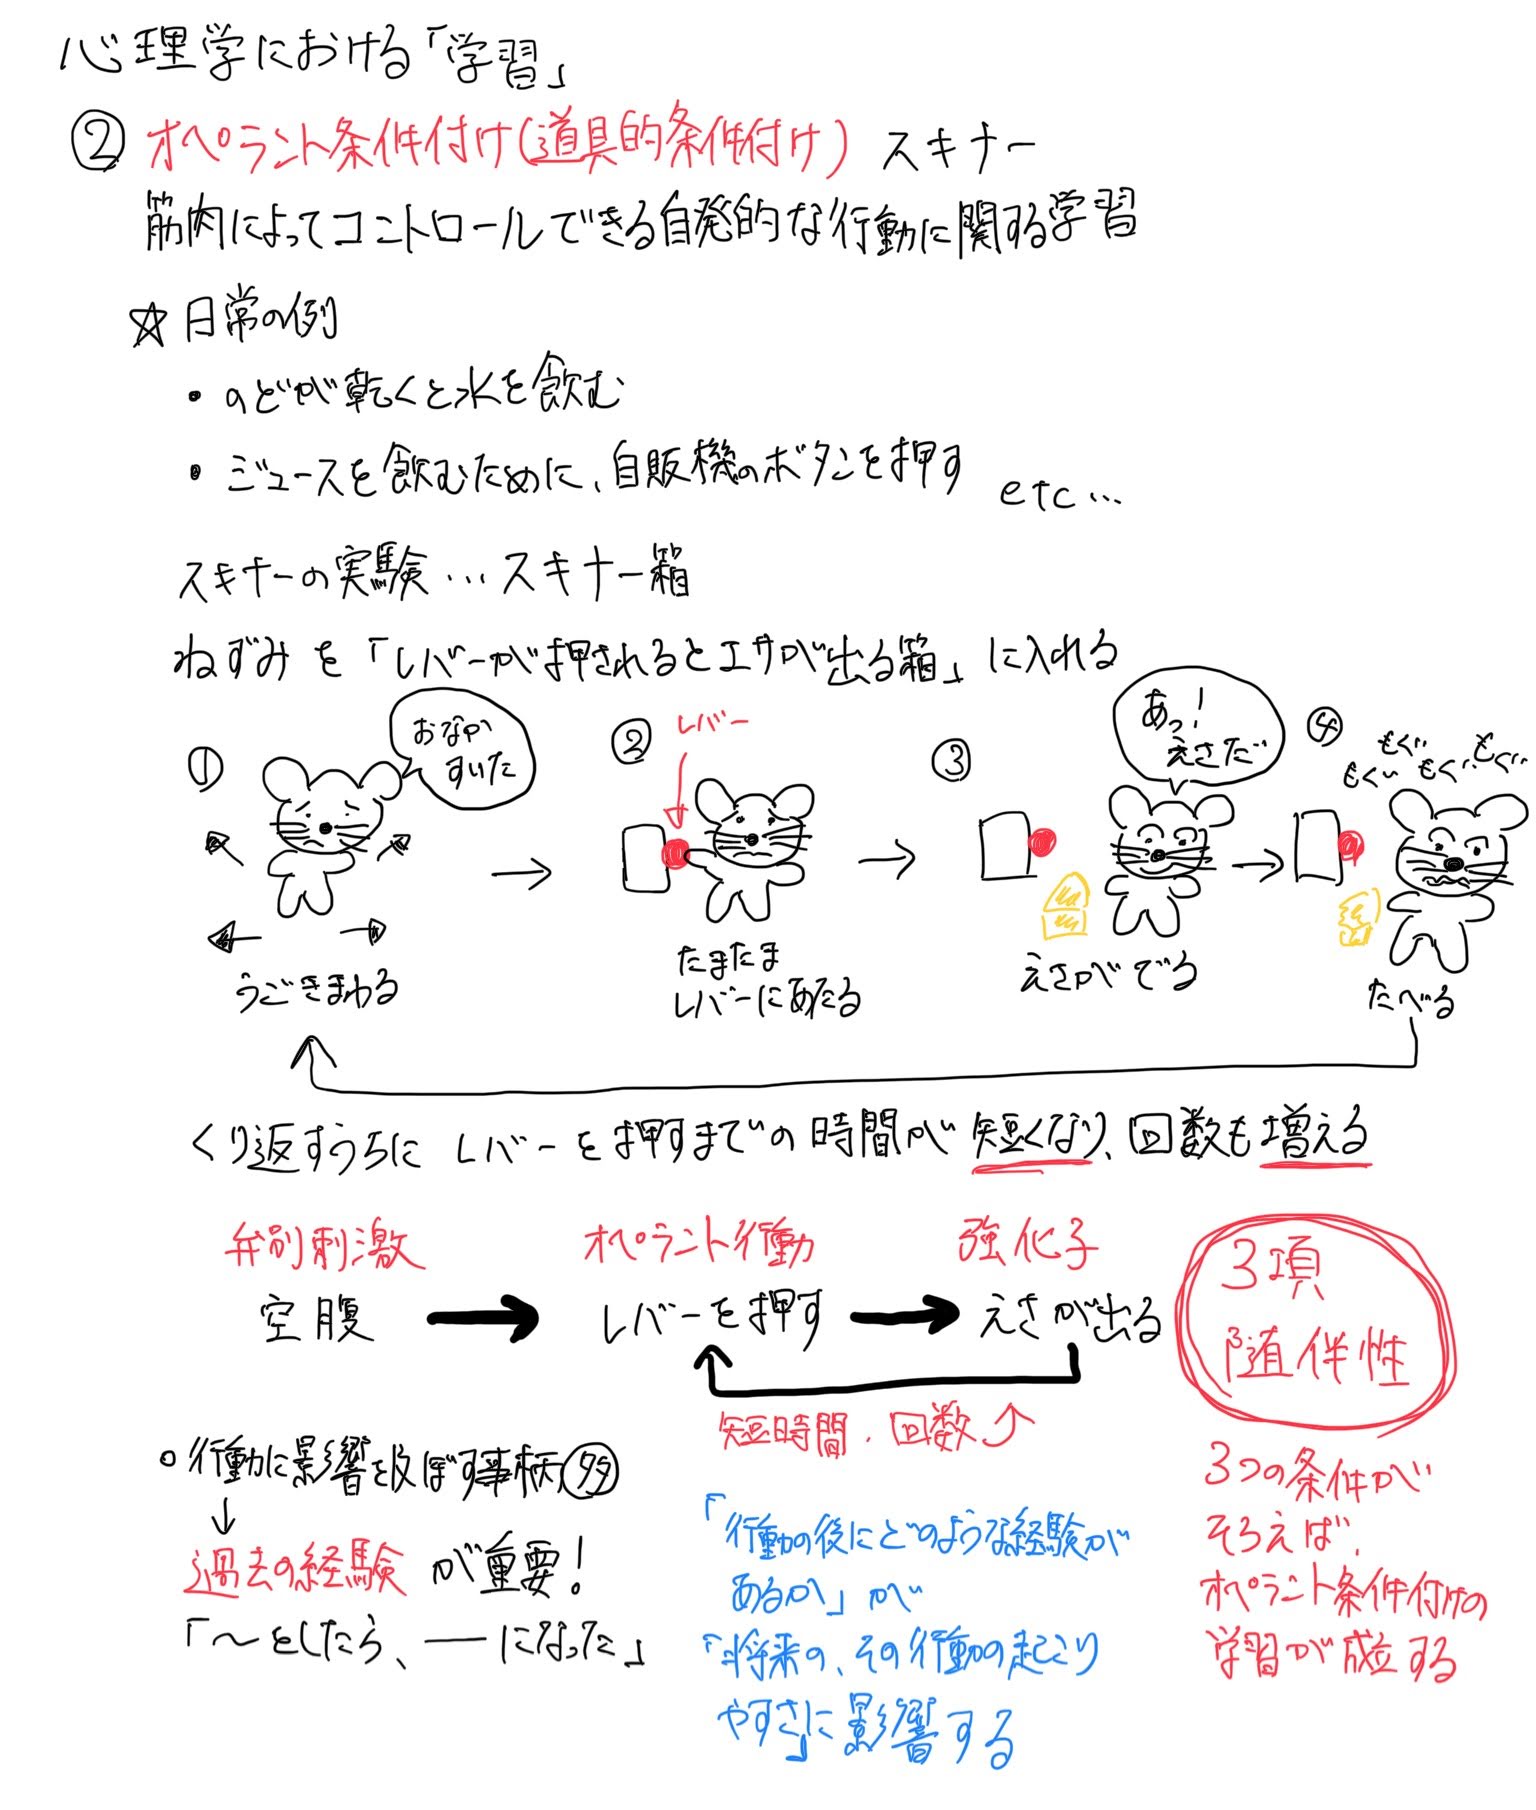 心理学における「学習」
② オペラント条件付け(道具的条件付け) スキナー
筋肉によってコントロールできる自発的な行動に関する学習
☆日常の例
・のどが乾くと水を飲む
・ジュースを飲むために、自販機のボタンを押す etc…
スキナーの実験…スキナー箱
ねずみを「レバーが押されるとエサが出る箱」に入れる
①
おなか
すいた
うごきまわる
②
レバー
たまたま
レバーにあたる
③
あっ!
えさだ
えさがでる
④
もぐもぐもぐもぐ
たべる
くり返すうちにレバーを押すまでの時間が短くなり、回数も増える
弁別刺激 オペラント行動 強化子
空腹 → レバーを押す → えさが出る
短時間、回数↑
3項
随伴性
3つの条件が
そろえば、
オペラント条件付けの
学習が成立する
○行動に影響を及ぼす事柄 タタ
↓
過去の経験が重要!
「〜をしたら、―になった」
「行動の後にどのような経験が
あるか」が
「将来の、その行動の起こり
やすさ」に影響する